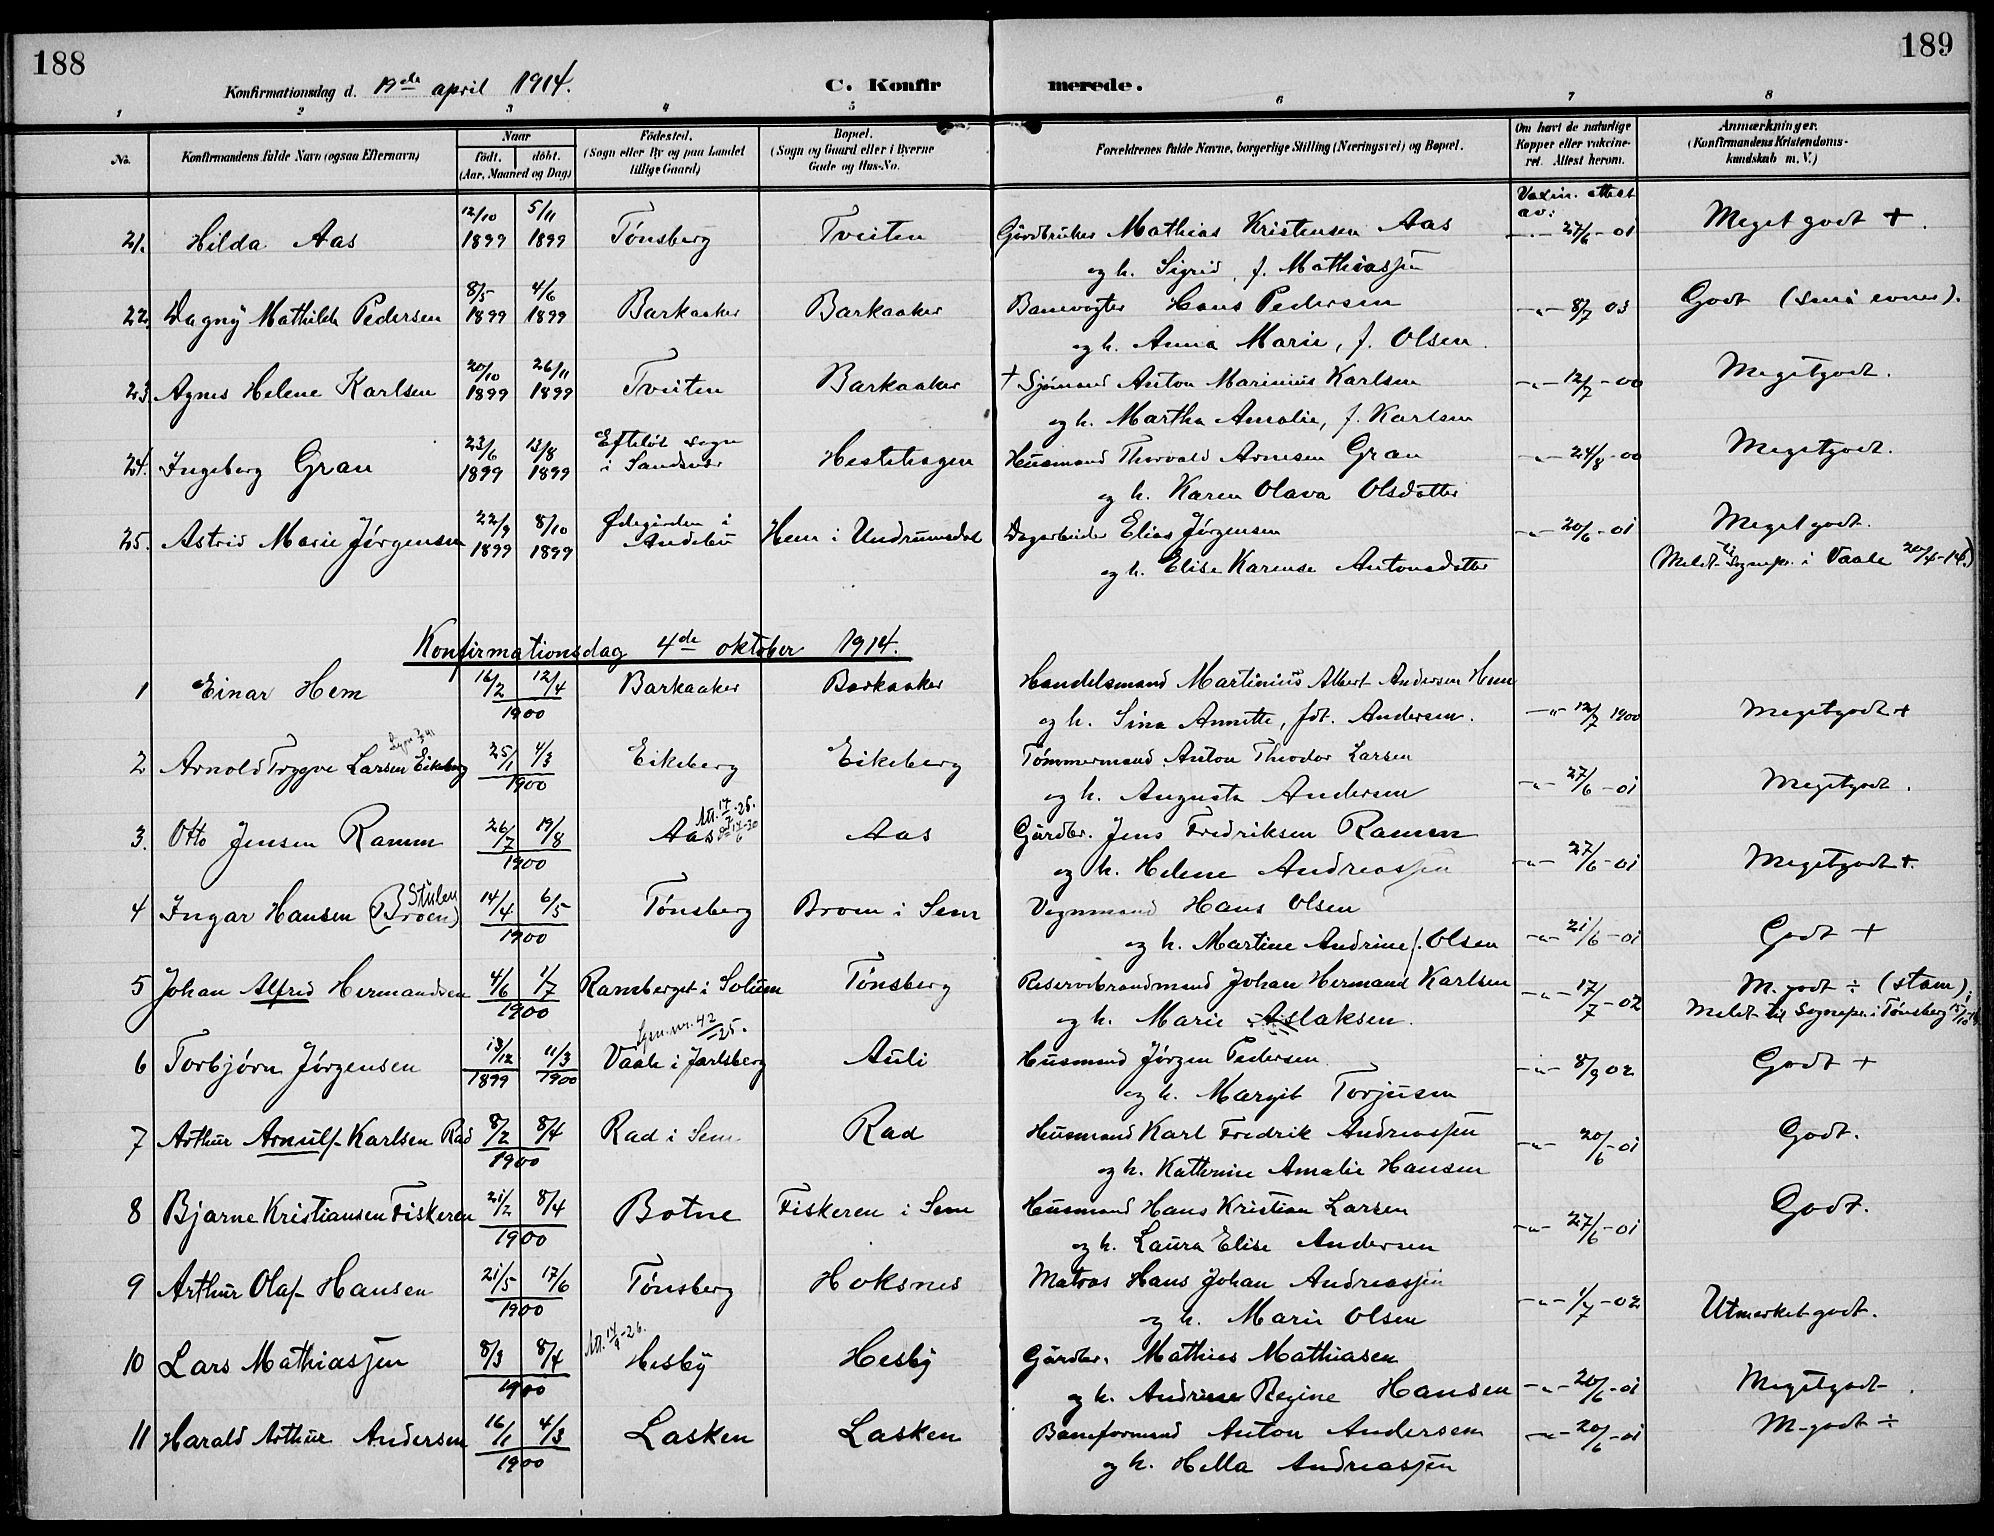 188
189
Konfirmationsdag d. 19de april 1914.
C. Konfirmerede.
1 2 3 4 5 6 7 8
No.
Konfirmandens fulde Navn (ogsaa Efternavn)
Naar
født. døbt.
(Aar, Maaned og Dag)
Fødested.
(Sogn eller By og paa Landet
tillige Gaard)
Bopæl.
(Sogn og Gaard eller i Byerne
Gade og Hus-No.
Forældrenes fulde Navne, borgerlige Stilling (Næringsvei) og Bopæl.
Om havt de naturlige
Kopper eller vakcine-
ret. Attest herom.
Anmærkninger.
(Konfirmandens Kristendoms-
kundskab m. V.)
Vaxin. attest
av:
21. Hilda Aas 12/10 1899 5/11 1899 Tønsberg Tveiten Gårdbruker Mathias Kristensen Aas -"- 27/6-01 Meget godt +.
og h. Sigrid, f. Mathiassen
22. Dagny Mathilde Pedersen 8/5 1899 4/6 1899 Barkaaker Barkaaker Banevogter Hans Pedersen -"- 8/7 03 Godt (små evner).
og h. Anna Marie, f. Olsen.
23. Agnes Helene Karlsen 20/10 1899 26/11 1899 Tveiten Barkaaker † Sjømand Anton Marinius Karlsen -"- 12/7-00 Megetgodt.
og h. Martha Amalie, f. Karlsen
24. Ingeborg Gran 23/6 1899 13/8 1899 Efteløt sogn
i Sandsvær Hestehagen Husmand Thorvald Arnesen Gran -"- 24/8-00 Megetgodt.
og h. Karen Olava Olsdatter
25. Astrid Marie Jørgensen 22/9 1899 8/10 1899 Ødegården i
Andebu Hem i Undrumsdal Dagarbeider Elias Jørgensen -"- 20/6-01 Megetgodt.
og h. Elise Karense Antonsdatter (Meldt til Sognepr. i Vaale 20/4-14.)
Konfirmationsdag 4de oktober 1914.
1 Einar Hem 16/2 12/4 1900 Barkaaker Barkaaker Handelsmand Martinius Albert Andersen Hem
og h. Sina Annette, fdt. Andersen. -"- 12/7 1900 Megetgodt +
2 Arnold Tryggve Larsen Eikeberg 25/1 4/3 1900 Eikeberg Eikeberg Tømmermand Anton Theodor Larsen
og h. Augusta Andersen -"- 27/6-01 Megetgodt.
3. Otto Jensen Ramm 26/7 19/8 1900 Aas Aas Gårdbr. Jens Fredriksen Ramm
Att. 17/7-25.
og h. Helene Andreassen -"- 27/6-01 Megetgodt +.
4 Ingar Hansen (Broen) Stulen 14/4 6/5 1900 Tønsberg Broen i Sem Vognmand Hans Olsen
og h. Martine Andrine f. Olsen -"- 21/6-01 Godt +
5 Johan Alfred Hermandsen 4/6 1/7 1900 Ramberget i Solum Tønsberg Reservebrandmand Johan Hermand Karlsen
og h. Marie Aslaksen. -"- 17/7-02 M. godt ÷ (stam).
Meldt til Sognepr. i Tønsberg
6 Torbjørn Jørgensen 13/12 1899 11/3 1900 Vaale i Jarlsberg Auli Husmand Jørgen Pedersen
nr. 42/25.
og h. Margit Torjusen -"- 8/9 02 Godt +
7 Arthur Arnulf Karlsen Rad 8/2 8/4 1900 Rad i Sem Rad Husmand Karl Fredrik Andreassen
og h. Kathrine Amalie Hansen -"- 20/6-01 Godt.
8 Bjarne Kristiansen Fiskeren 21/2 8/4 1900 Botne Fiskeren i Sem Husmand Hans Kristian Larsen
og h. Laura Elise Andersen -"- 27/6-01 Godt.
9 Arthur Olaf Hansen 21/5 17/6 1900 Tønsberg Hoksnes Matros Hans Johan Andreassen
og h. Marie Olsen -"- 1/7-02 Utmerket godt.
10 Lars Mathiassen 8/3 8/4 1900 Hesby Hesby Gårdbr. Mathies Mathiasen
og h. Andrine Regine Hansen -"- 20/6-01 Megetgodt.
11 Harald Arthur Andersen 16/1 4/3 1900 Lasken Lasken Baneformand Anton Andersen -"- 20/6-01 M-godt ÷
og h. Hella Andreassen